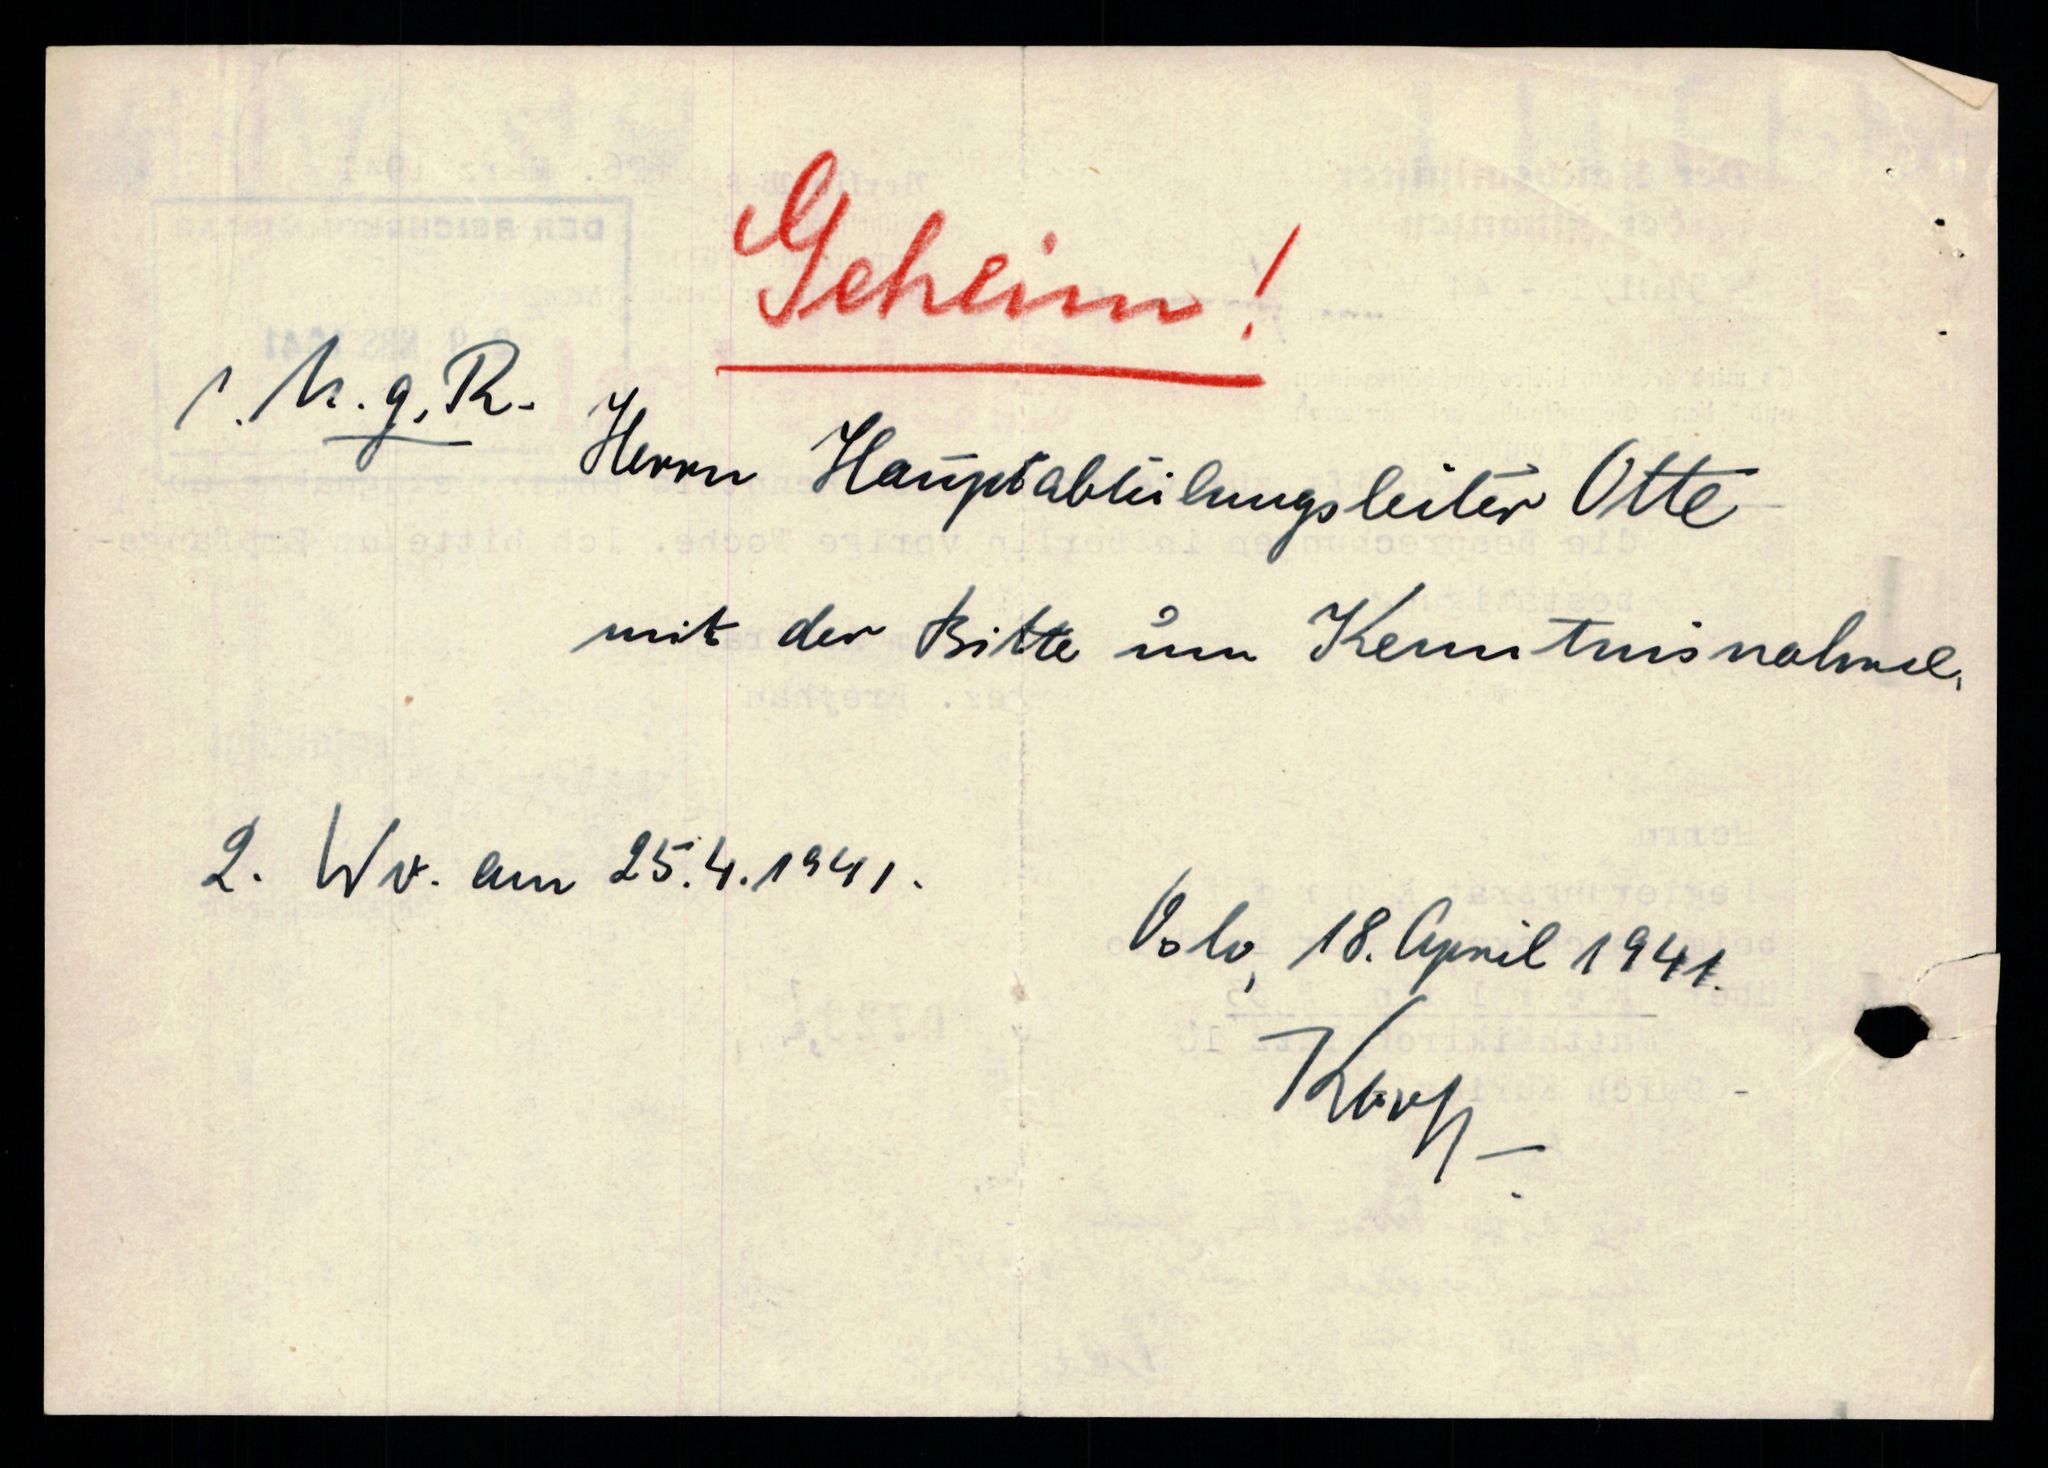 Geheim!
1. U. g. R.
Herrn Hauptabteilungsleiter Otte
mit der Bitte um Kenntnisnahme.
2. Wv. am 25.4.1941.
Oslo, 18. April 1941.
Korff